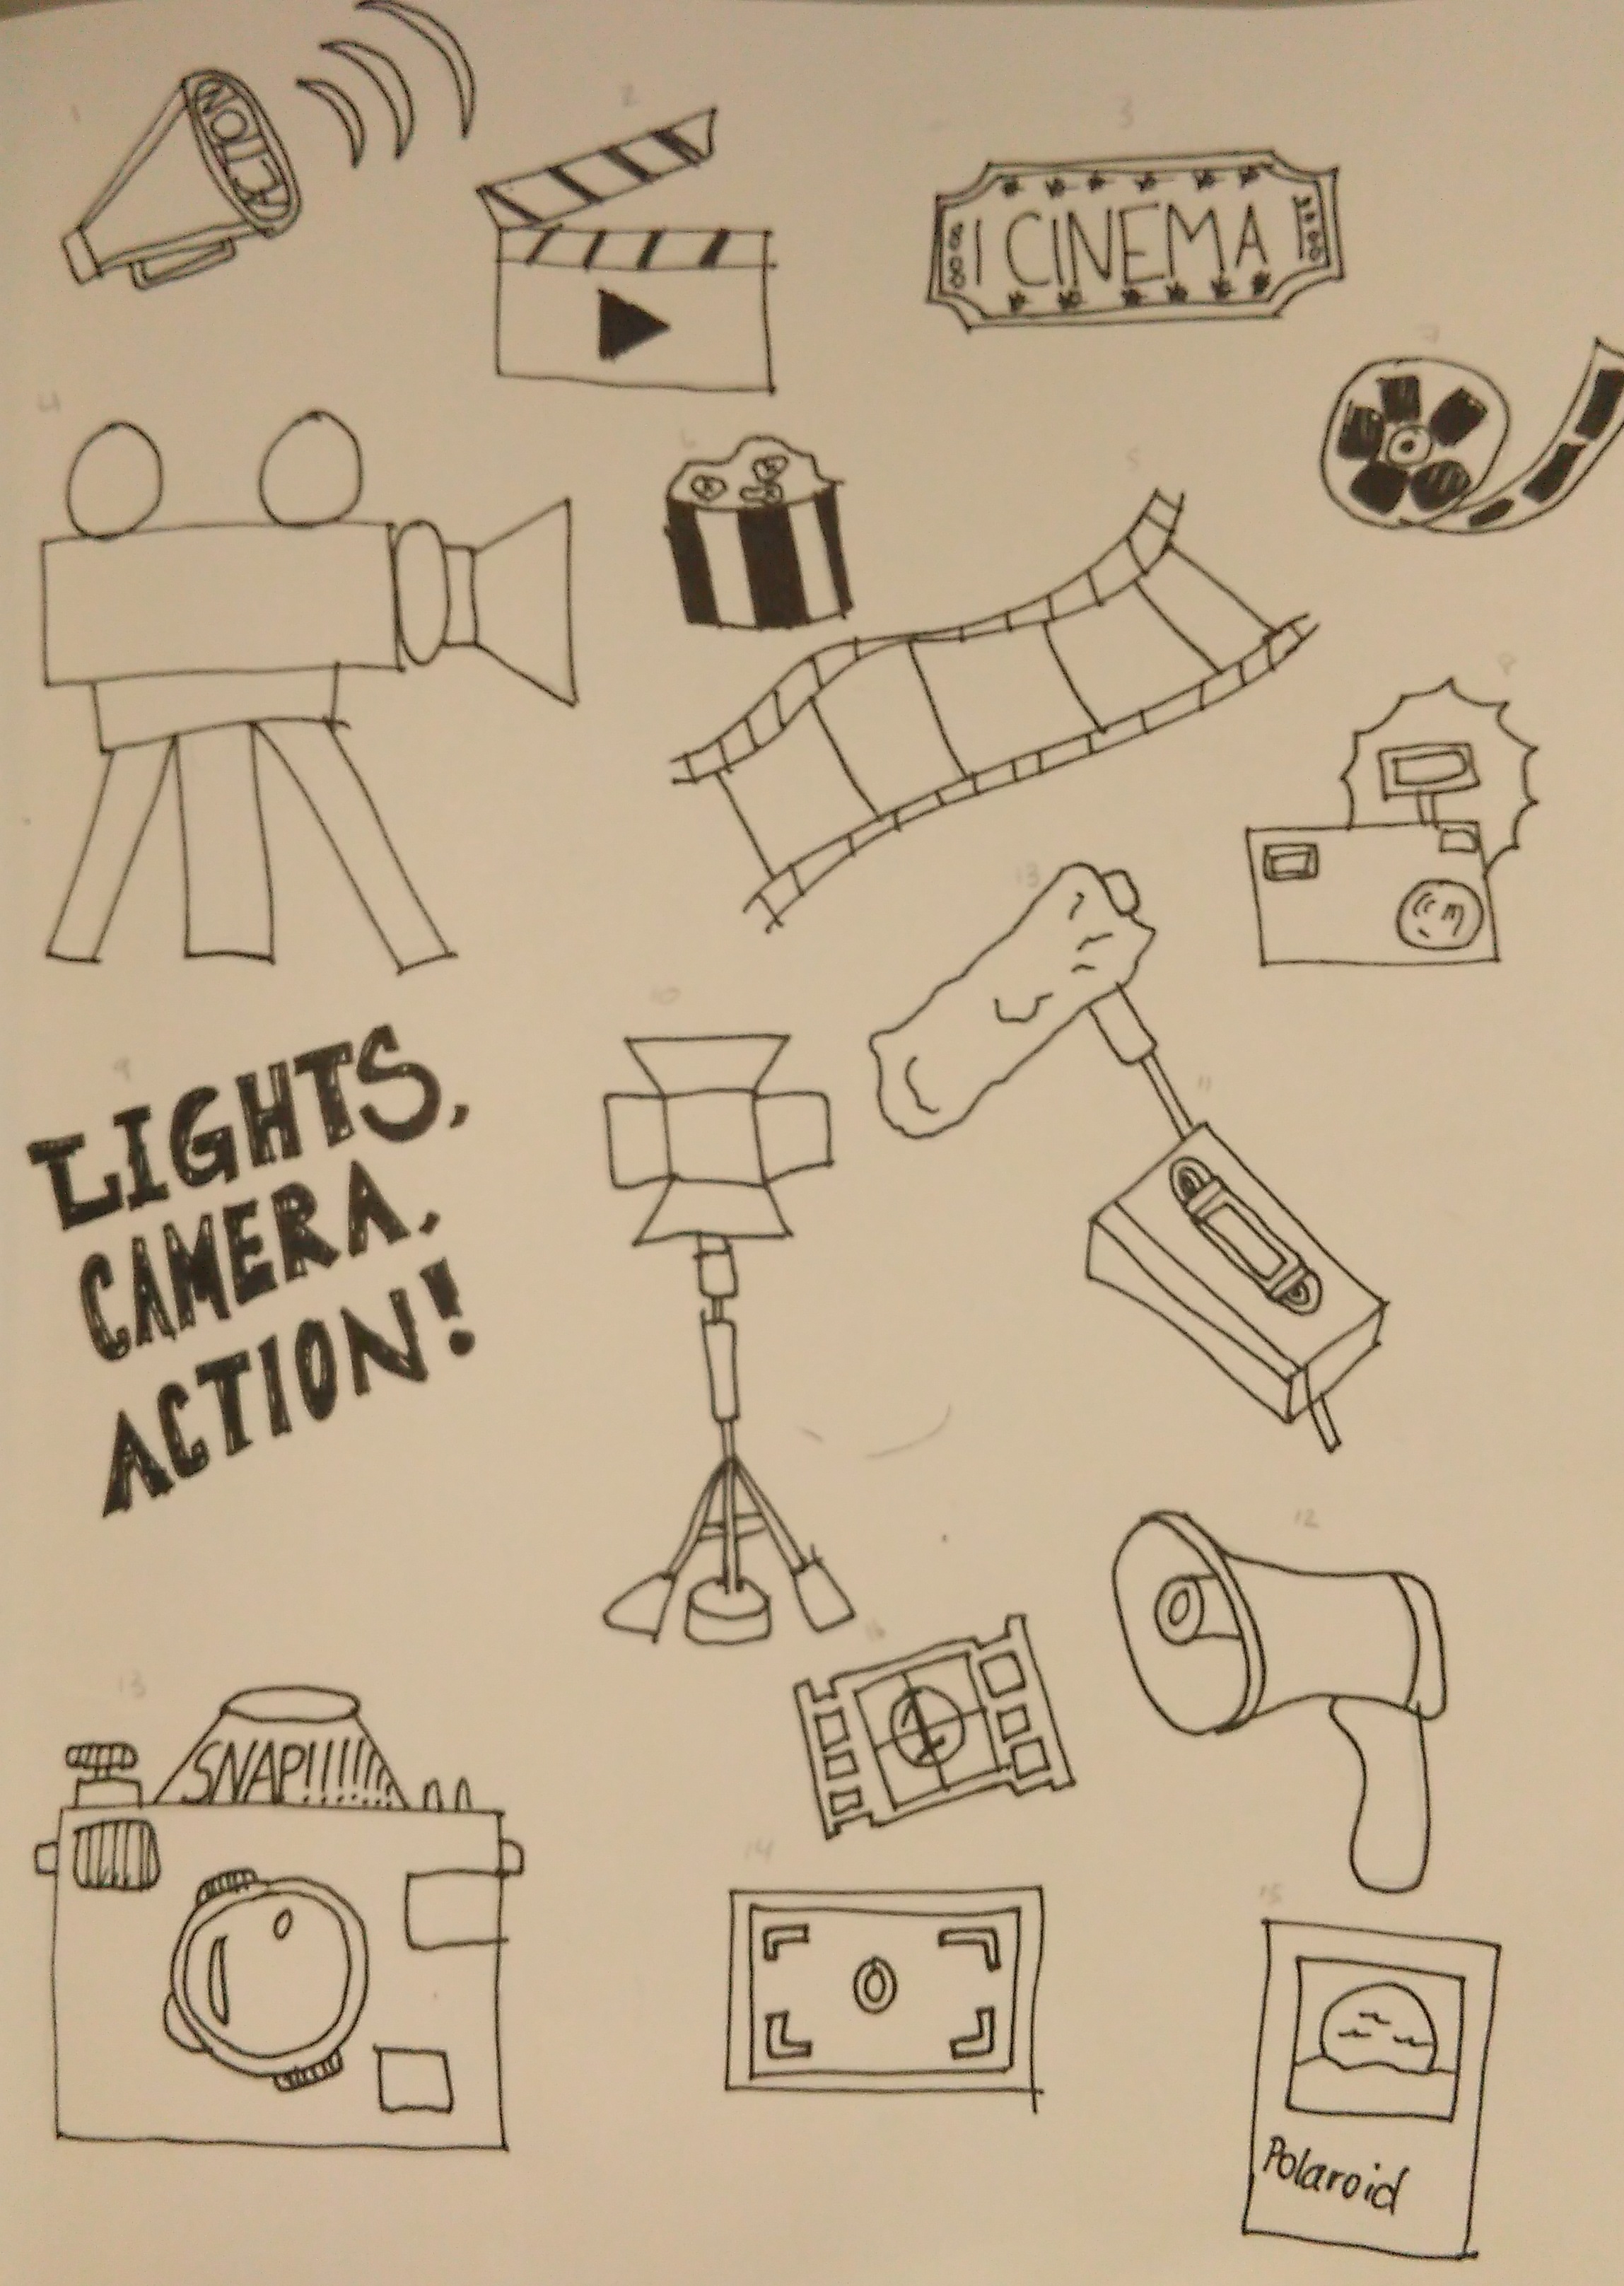 1
2
ACTION
3
8000
CINEMA
7
4
6
5
8
13
10
9
11
LIGHTS,
CAMERA,
ACTION!
12
16
13
SNAP!!!!!!
14
15
Polaroid